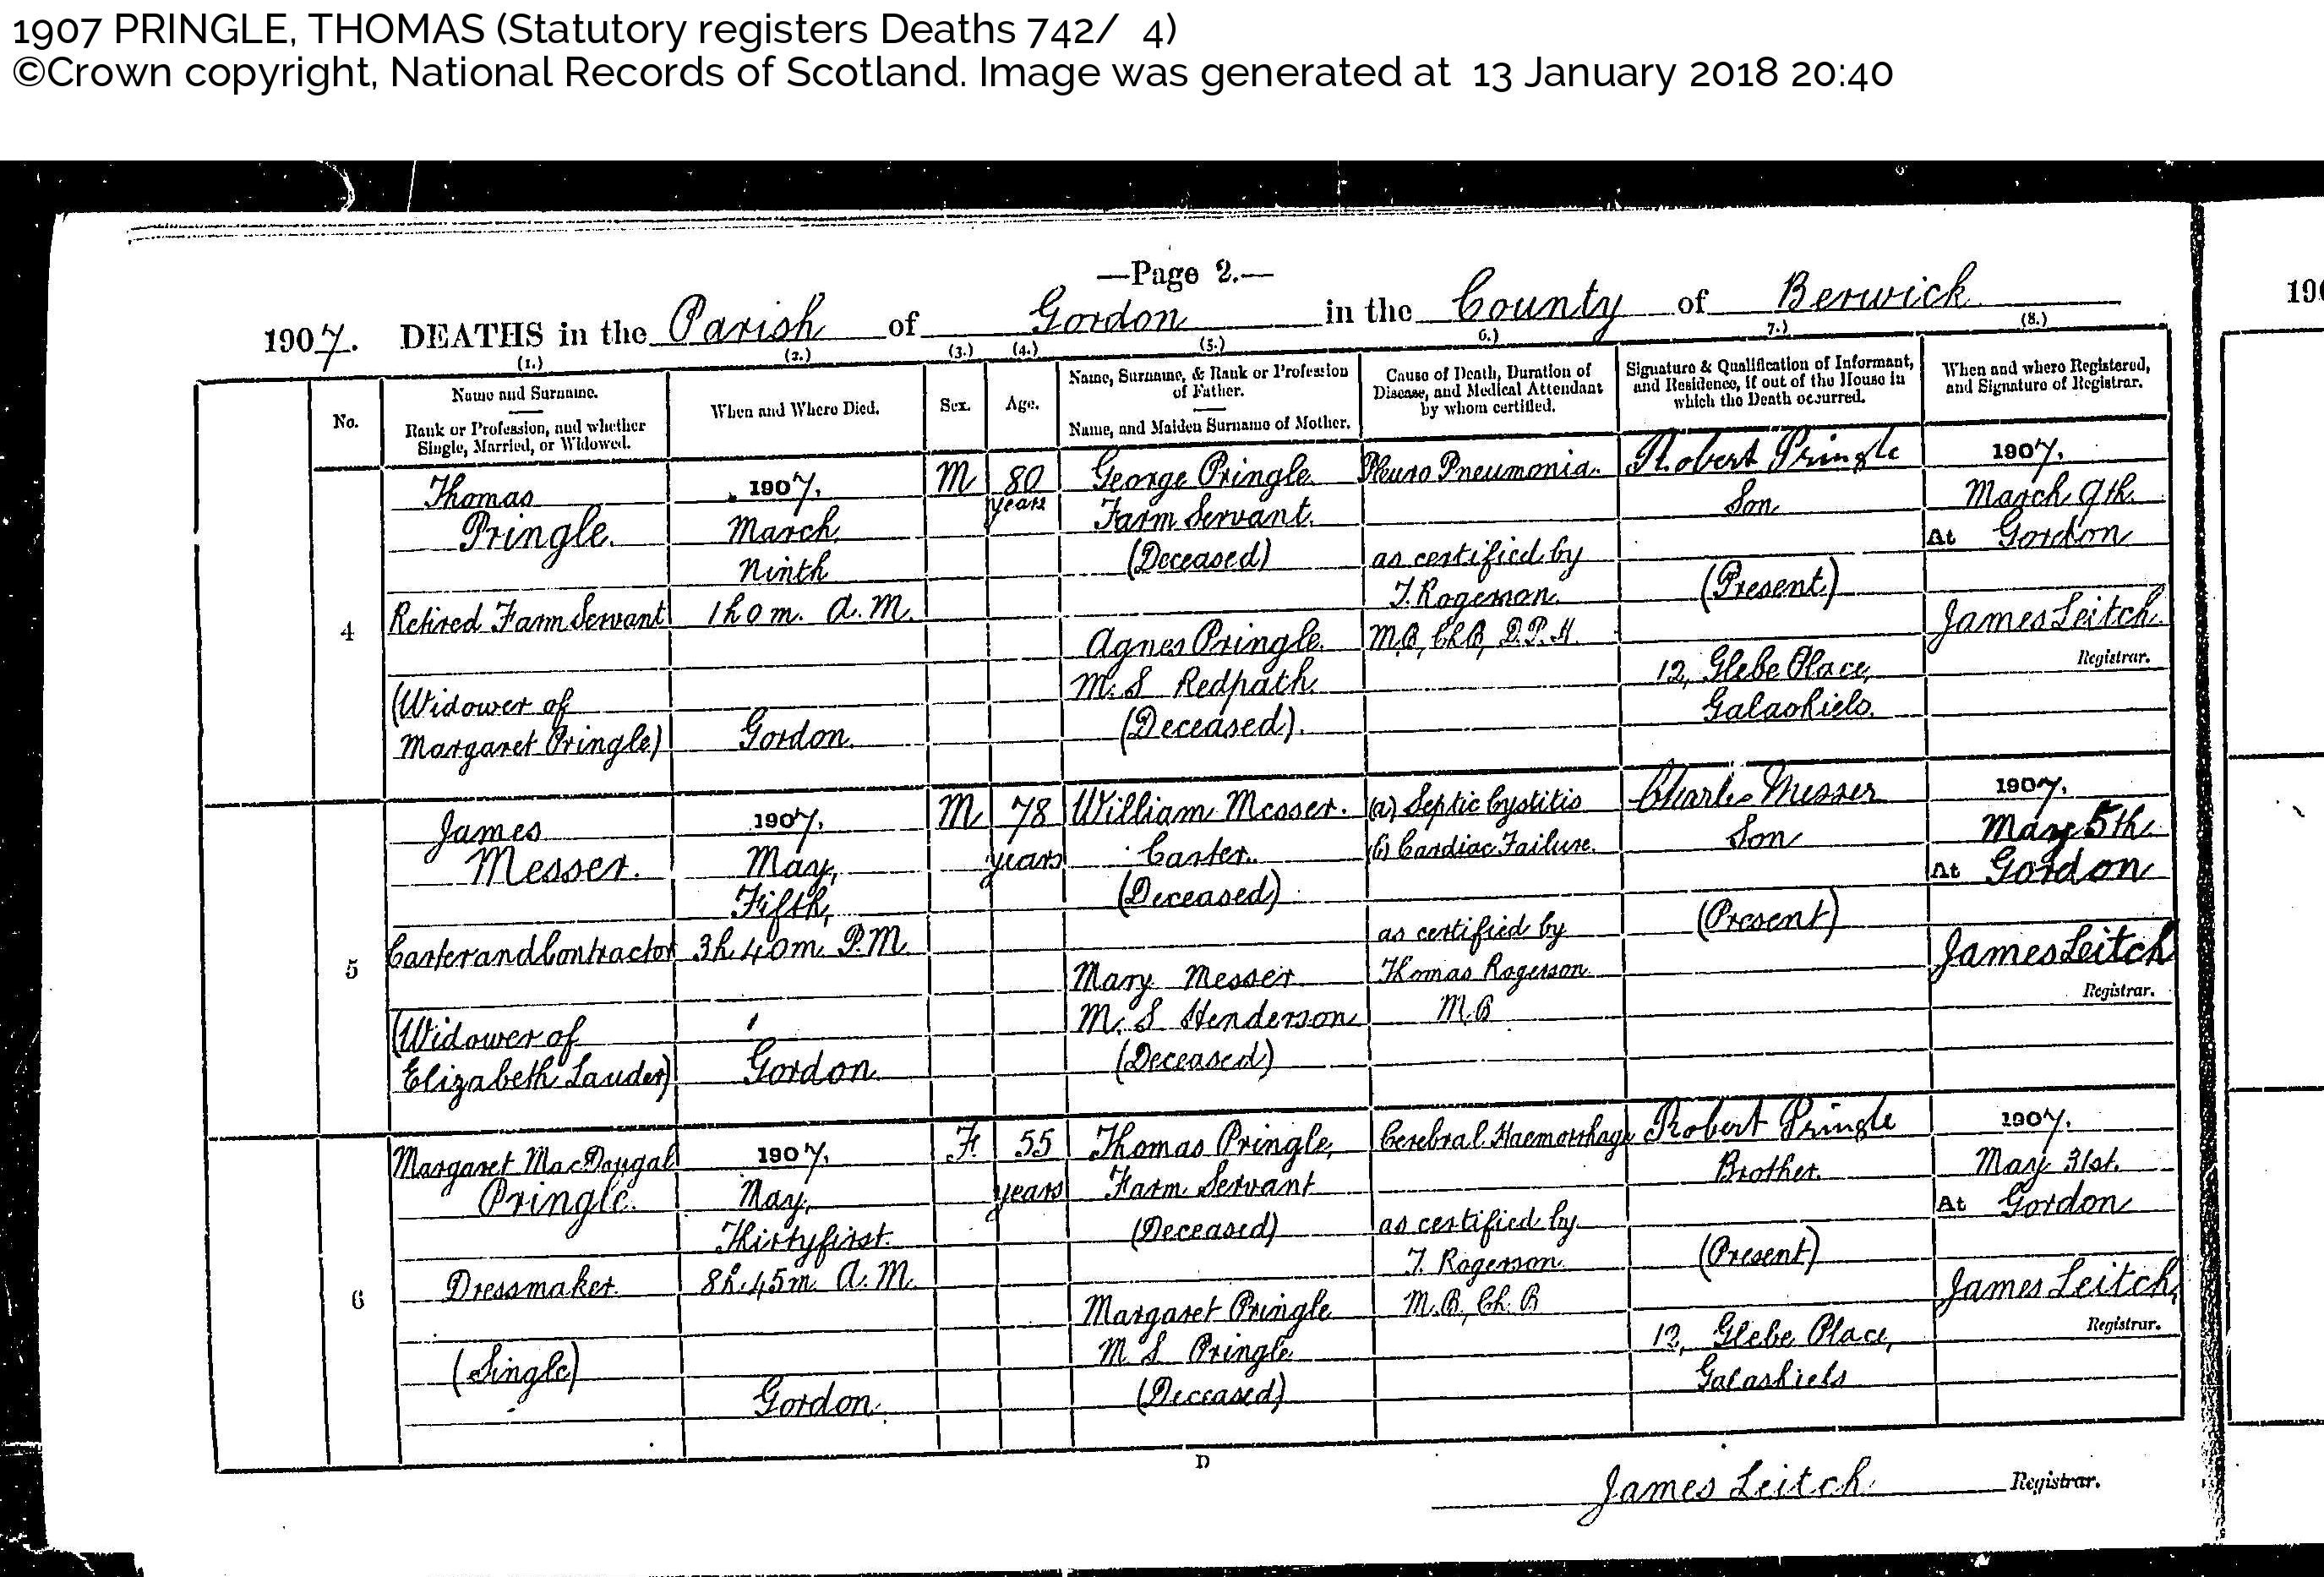 1907 PRINGLE, THOMAS (Statutory registers Deaths 742/  4)
©Crown copyright, National Records of Scotland. Image was generated at  13 January 2018 20:40
—Page 2.—
1907. DEATHS in the Parish of Gordon in the County of Berwick
190
(1.) (2.) (3.) (4.) (5.) 6.) 7.) (8.)
No.
Name and Surname.
Rank or Profession, and whether
Single, Married, or Widowed.
When and Where Died.
Sex.
Age.
Name, Surname, & Rank or Profession
of Father.
Name, and Maiden Surname of Mother.
Cause of Death, Duration of
Disease, and Medical Attendant
by whom certified.
Signature & Qualification of Informant,
and Residence, if out of the House in
which the Death occurred.
When and where Registered,
and Signature of Registrar.
4
Thomas
Pringle.
Retired Farm Servant
(Widower of
Margaret Pringle)
1907.
March
Ninth
1h 0m. A.M.
Gordon
M
80
years
George Pringle
Farm Servant.
(Deceased)
Agnes Pringle
M.S Redpath
(Deceased).
Pleuro Pneumonia.
as certified by
T. Rogerson
M.B, Ch.B, D.P.H.
Robert Pringle
Son
(Present)
12, Glebe Place,
Galashiels.
1907.
March 9th.
At Gordon
James Leitch
Registrar.
5
James
Messer.
Carter and Contractor
(Widower of
Elizabeth Lauder)
1907.
May,
Fifth,
3h 40m P.M.
Gordon
M
78
years
William Messer.
Carter.
(Deceased)
Mary Messer
M.S Henderson
(Deceased)
(a) Septic Cystitis
(b) Cardiac Failure.
as certified by
Thomas Rogerson
M.B
Charles Messer
Son
(Present)
1907.
May 5th
At Gordon
James Leitch
Registrar.
6
Margaret MacDougal
Pringle.
Dressmaker
(Single)
1907.
May,
Thirtyfirst.
8h.45m A.M.
Gordon
F.
55
years
Thomas Pringle,
Farm Servant
(Deceased)
Margaret Pringle
M S Pringle
(Deceased)
Cerebral Haemorrhage
as certified by
T. Rogerson
M.B, Ch. B
Robert Pringle
Brother.
(Present)
12, Glebe Place,
Galashiels
1907.
May 31st.
At Gordon
James Leitch,
Registrar.
D
James Leitch Registrar.